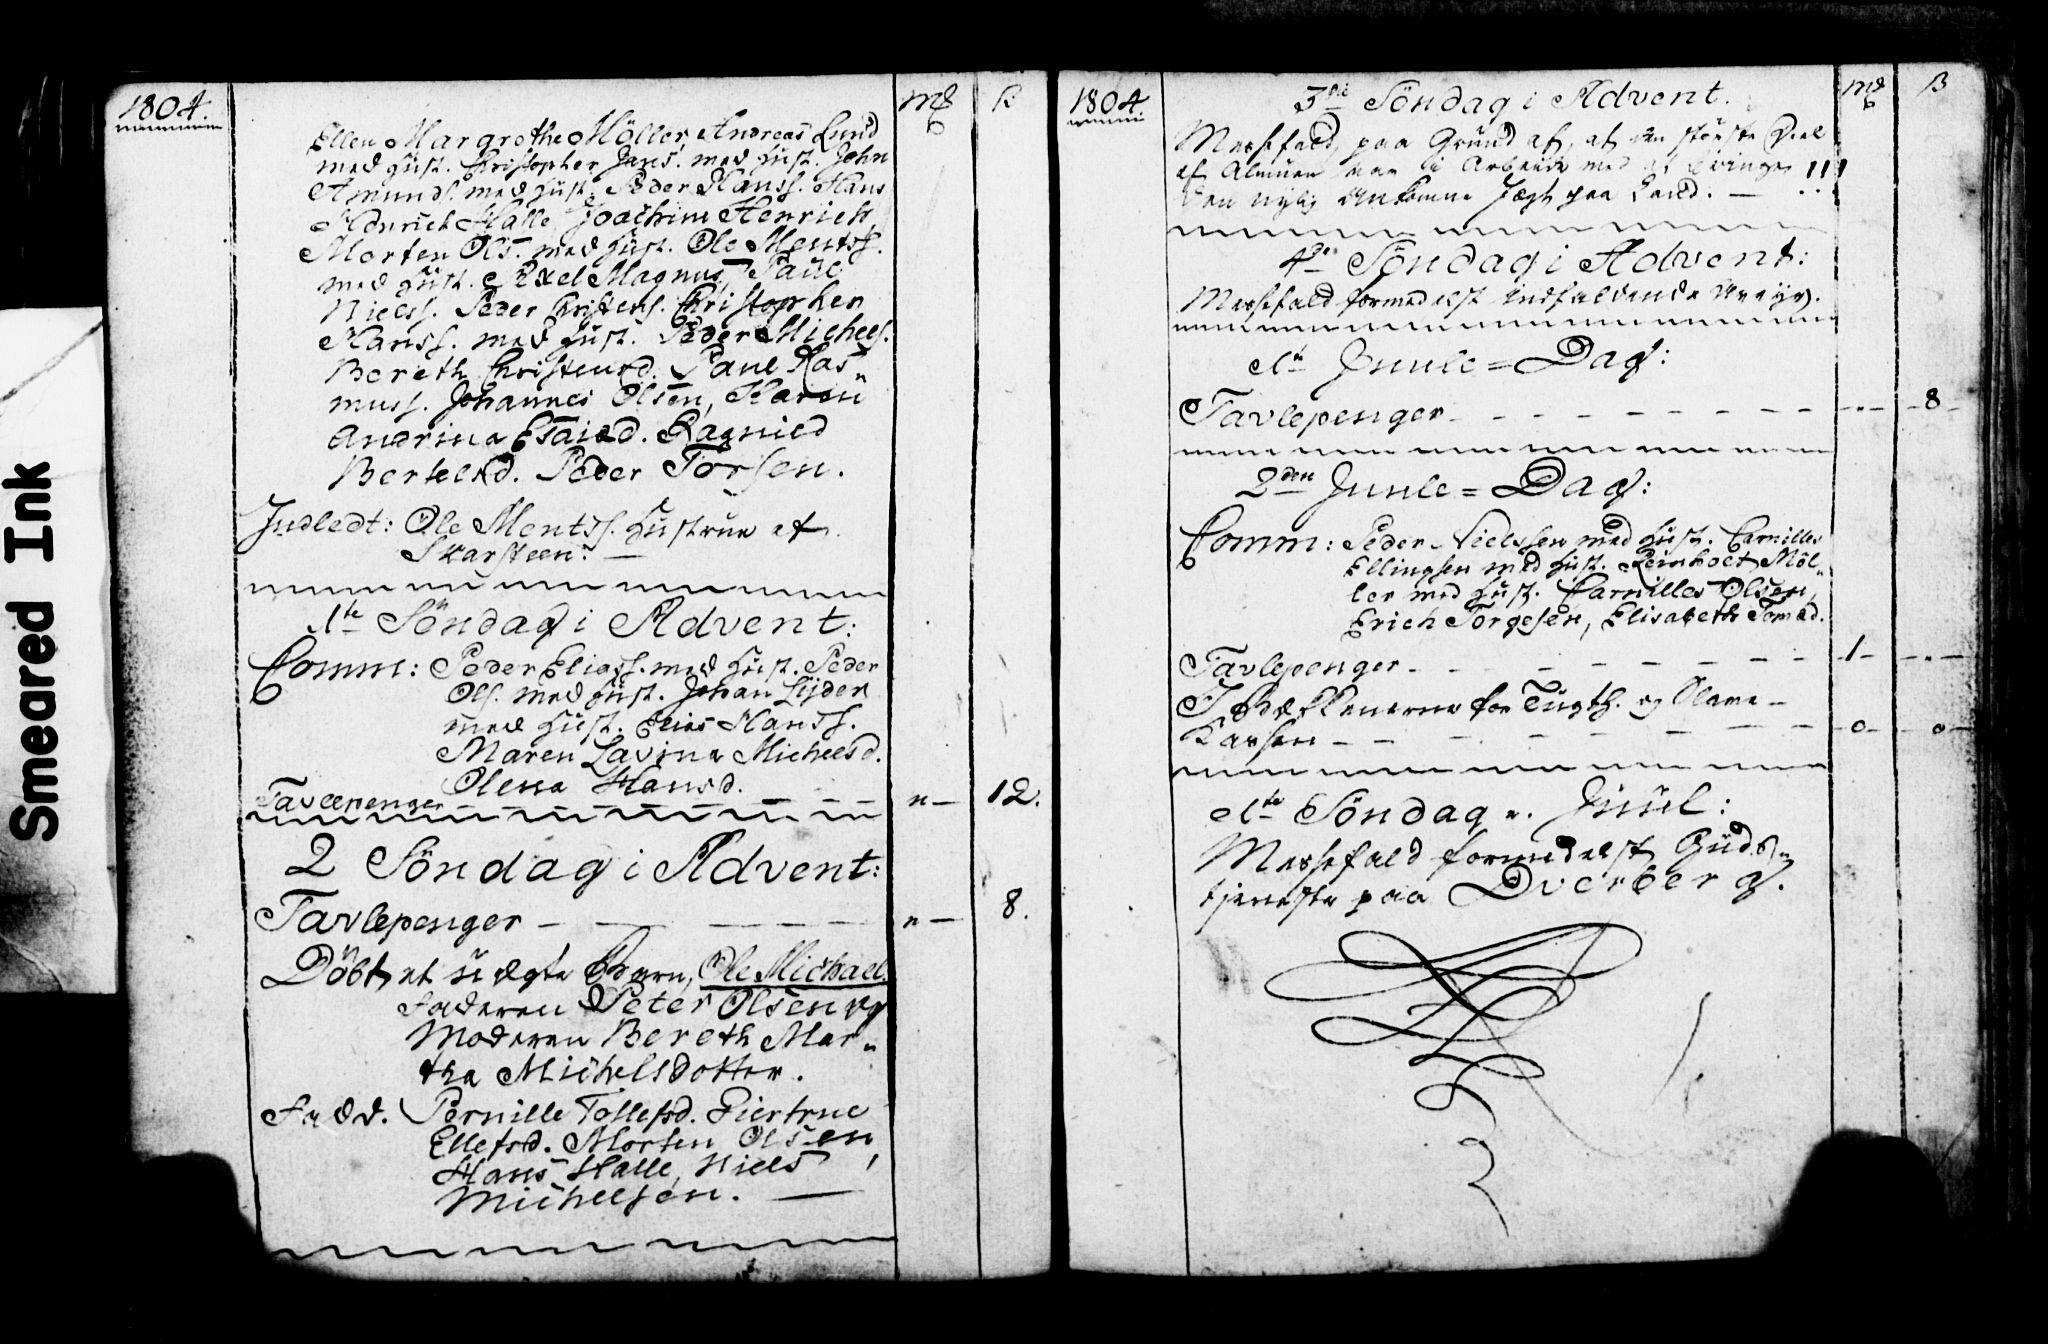 Smeared Ink
1804.
mꝃ ß
Ellen Margrethe Möller, Andreas Lund
med Hust. Christopher Jans. med Hust. John
Amunds. med Hust. Peder Hanss. Hans
Hdnrich Halle, Joachim Henrich,
Morten Ols. med Hust. Ole Mentss.
med Hust. Axel Magnus, Paul
Nielss. Peder Christens. Christopher
Hanss. med Hust. Peder Michels.
Bereth Christensd. Paul Ras„
muss. Johannes Olsen, Karen
Andrina Esaisd. Ragnild
Bertelsd. Peder Torsen.
Indledt: Ole Mentss. Hustrue af
Skarsteen. —
1te Söndag i Advent:
Comm: Peder Eliass. med Hust. Peder
Ols. med Hust. Johan Lyder
med Hust. Elias Hanss.
Maren Lavina Michelsd.
Olena Hansd.
Tavlepenger — — — — — „ — 12.
2 Söndag i Advent:
Tavlepenger — — — — — „ — 8.
Döbt, et uægte Barn, Ole Michael.
Faderen Peter Olsen og
Moderen Bereth Mar„
tha Michelsdotter.
Fadd. Pernille Tollefsd. Giertrue
Ellefsd. Morten Olsen,
Hans Halle, Niels
Michelsen. —
1804.
3die Söndag i Advent.
mꝃ ß
Messefald, paa Grund af, at den störste Deel
af Almuen var i Arbeide med at bringe !!!
den nylig ankomne Jægt paa Land. —
4de Söndag i Advent:
Messefald formedelst indfaldende Uveyr.
1te Juule=Dag:
Tavlepenger - - - - - - - - - „ - - 8 -
2den Juule=Dag:
Comm: Peder Nielssen med Hust. Cornilles
Ellingsen med Hust. Reinholt Möl„
ler med Hust. Cornilles Olsen,
Erich Torgesen, Elisabeth Tomasd.
Tavlepenger - - - - - - - 1 - - „ -
I Bækkenerne for Tugth. og Slave-
Kassen - - - - - - - - 0 - - 0 -
1te Söndag e. Juul:
Messefald formedelst Guds„
tjeneste paa Dverberg.